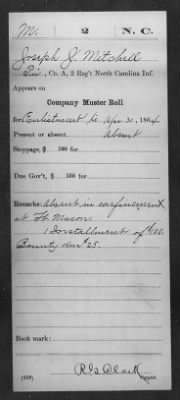 M. 2 N.C.
Joseph J. Mitchell
Pvt, Co. A, 2 Reg't North Carolina Inf.
Appears on
Company Muster Roll
for Enlistment to Apr 30, 1864.
Present or absent, Absent
Stoppage, $ 100 for
Due Gov't, $ 100 for
Remarks: Absent in confinement
at Ft. Macon.
1 Installment of
Bounty due $25.
Book mark:
R S Clark
Copyist.